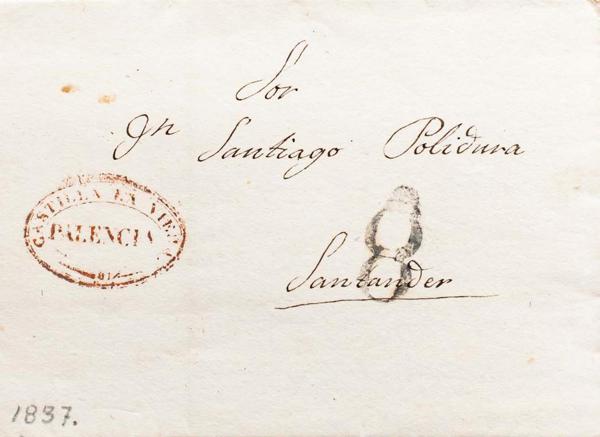 Sor
Jn Santiago Polidura
CASTILLA LA VIEJA
PALENCIA
8
Santander
1837.